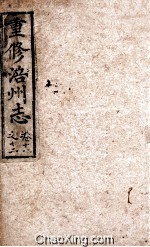 重修涪州志
卷十一
之十二
ChaoXing.com